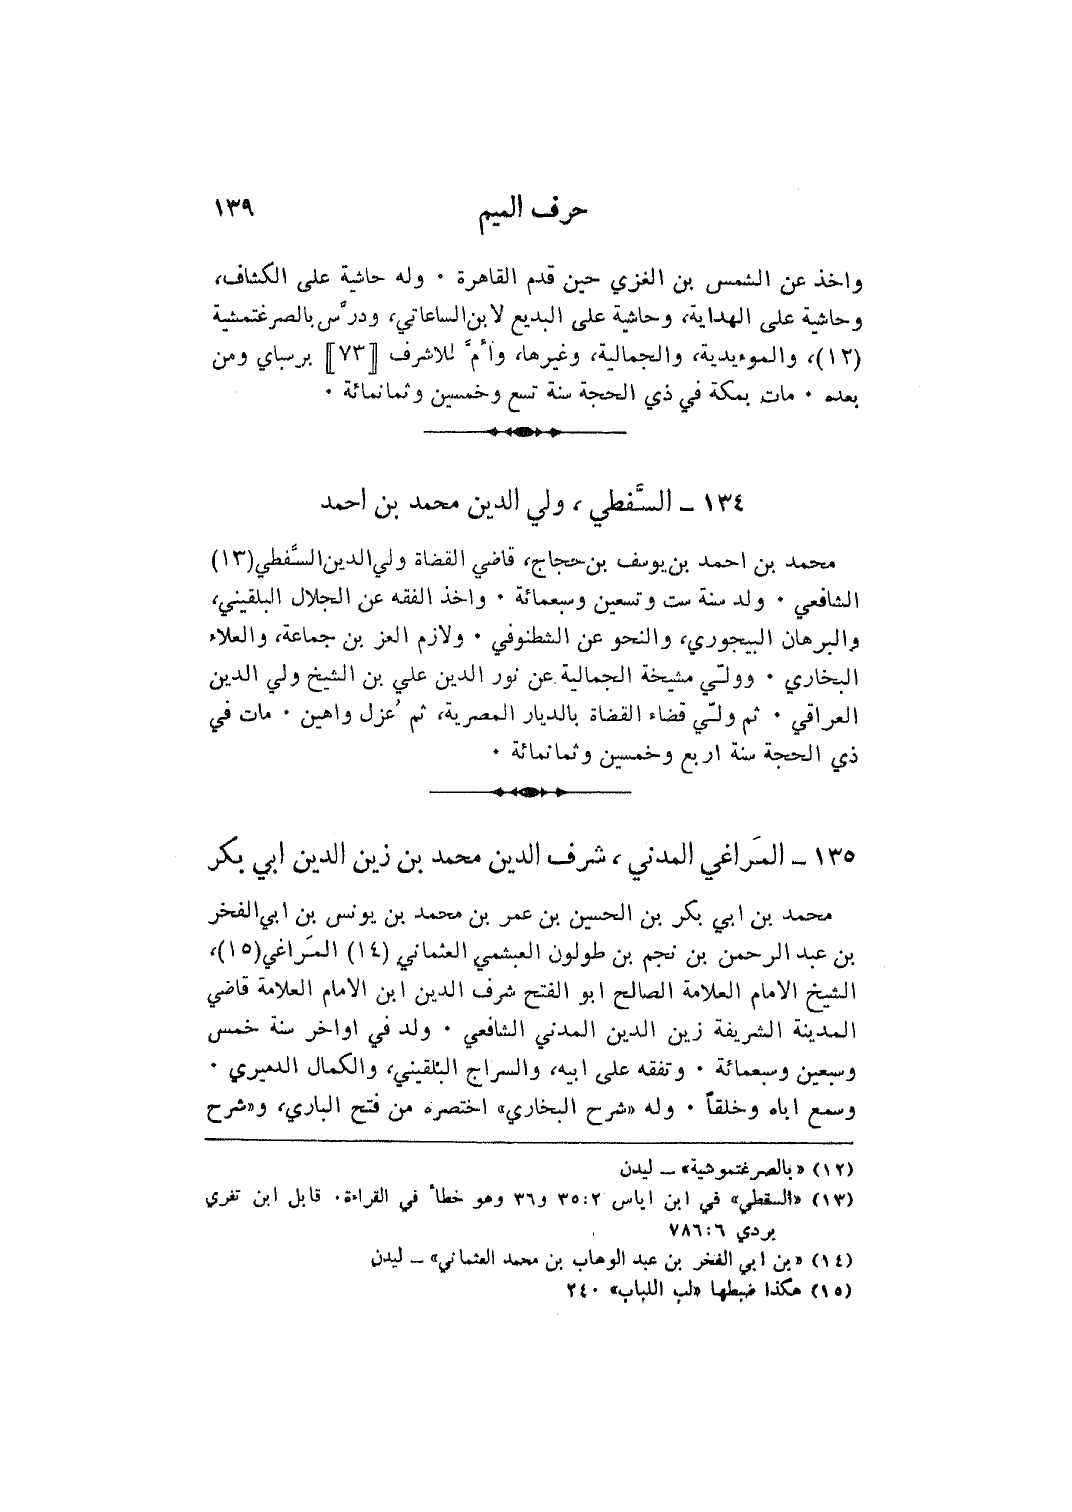 حرف الميم ١٣٩
واخذ عن الشمس بن الغزي حين قدم القاهرة · وله حاشية على الكشاف،
وحاشية على الهداية، وحاشية على البديع لابن الساعاتي، ودرَّس بالصرغتمشية
(١٢)، والموءيدية، والجمالية، وغيرها، وأمَّ للاشرف [[٧٣]] برسباي ومن
بعده · مات بمكة في ذي الحجة سنة تسع وخمسين وثمانمائة ·
١٣٤ – السَّفطي ، ولي الدين محمد بن احمد
محمد بن احمد بن يوسف بن حجاج، قاضي القضاة ولي الدين السَّفطي(١٣)
الشافعي · ولد سنة ست وتسعين وسبعمائة · واخذ الفقه عن الجلال البلقيني،
والبرهان البيجوري، والنحو عن الشطنوفي · ولازم العز بن جماعة، والعلاء
البخاري · وولّي مشيخة الجمالية عن نور الدين علي بن الشيخ ولي الدين
العراقي · ثم ولّي قضاء القضاة بالديار المصرية، ثم عُزل واهين · مات في
ذي الحجة سنة اربع وخمسين وثمانمائة ·
١٣٥ – المَراغي المدني ، شرف الدين محمد بن زين الدين ابي بكر
محمد بن ابي بكر بن الحسين بن عمر بن محمد بن يونس بن ابي الفخر
بن عبد الرحمن بن نجم بن طولون العبشمي العثماني (١٤) المَراغي(١٥)،
الشيخ الامام العلامة الصالح ابو الفتح شرف الدين ابن الامام العلامة قاضي
المدينة الشريفة زين الدين المدني الشافعي · ولد في اواخر سنة خمس
وسبعين وسبعمائة · وتفقه على ابيه، والسراج البُلقيني، والكمال الدميري ·
وسمع اباه وخلقاً · وله «شرح البخاري» اختصره من فتح الباري، و«شرح
(١٢) «بالصرغتموشية» – ليدن
(١٣) «السقطي» في ابن اياس ٢:٣٥ و٣٦ وهو خطأ في القراءة· قابل ابن تغري
بردي ٦:٧٨٦
(١٤) «بن ابي الفخر بن عبد الوهاب بن محمد العثماني» – ليدن
(١٥) هكذا ضبطها «لب اللباب» ٢٤٠